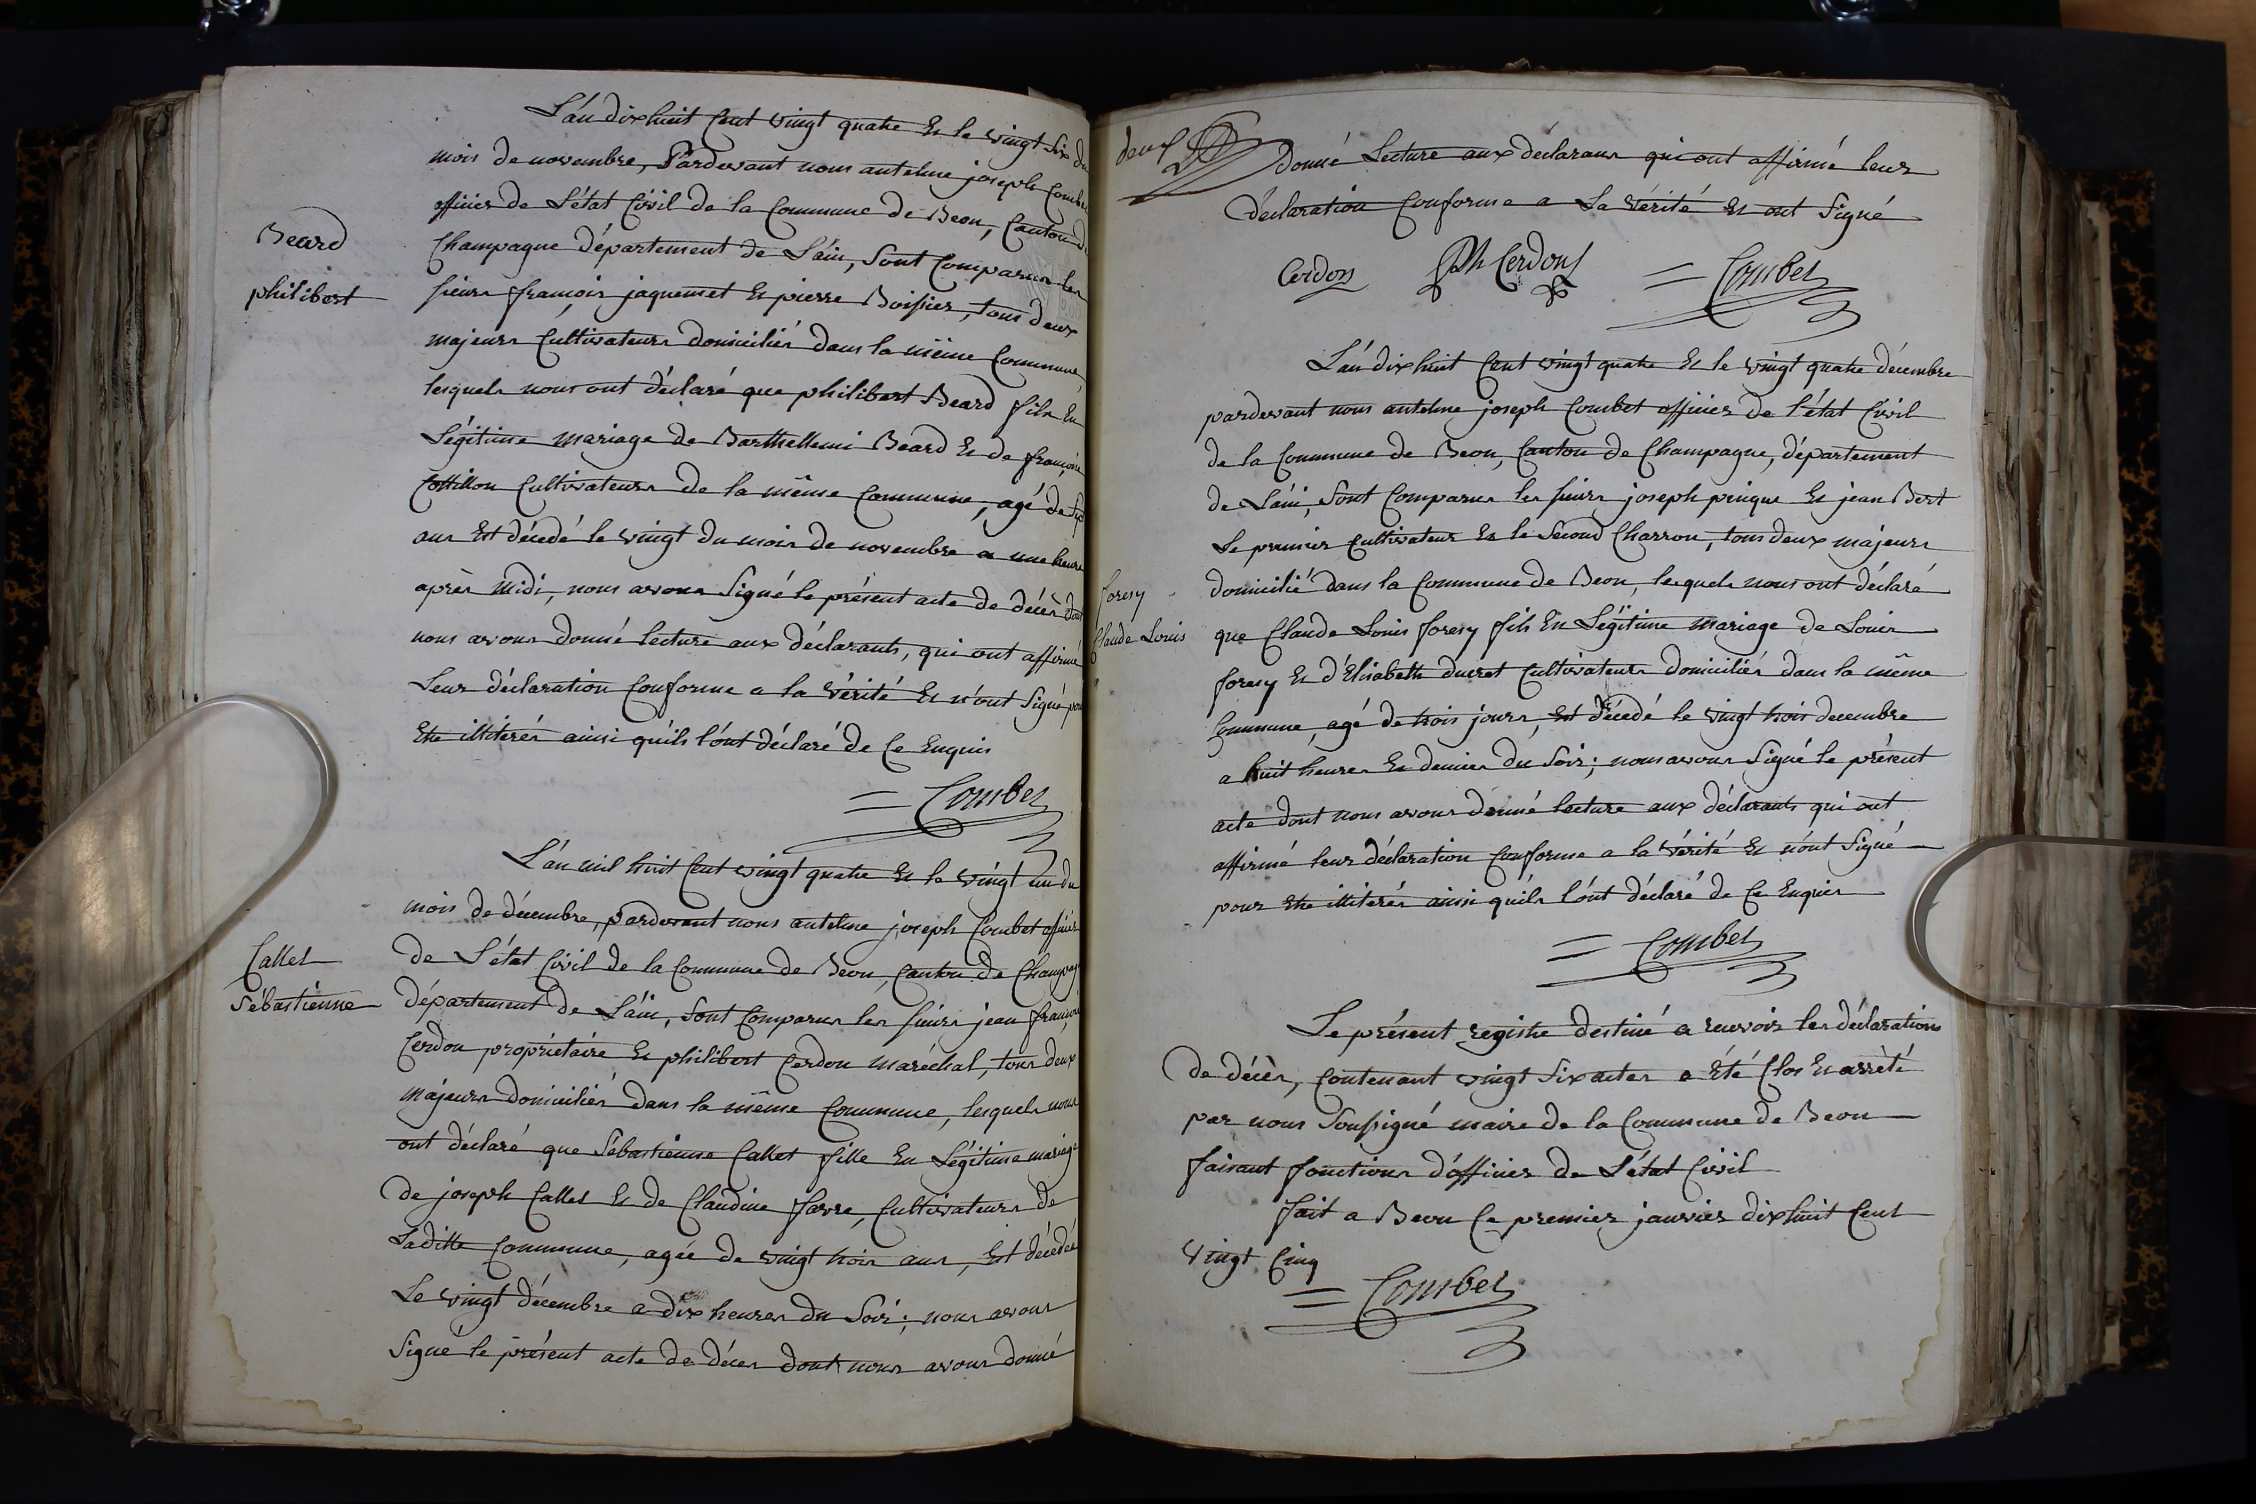 L'an dix huit Cent vingt quatre Et le vingt six du
mois de novembre, Pardevant nous antelme joseph Combet
officier de L'état Civil de la Commune de Beon, Canton de
Champagne département de L'ain, Sont Comparus les
sieurs françois jaquemet Et pierre Boissier, tous deux
Beard
philibert
majeurs Cultivateurs domiciliés dans la même Commune,
lesquels nous ont déclaré que philibert Beard fils En
Légitime mariage de Barthellemi Beard Et de françoise
Cottillon Cultivateurs de la même Commune, agé de
ans Est décedé le vingt du mois de novembre a une heure
après midi, nous avons Signé le présent acte de décès dont
nous avons donné lecture aux déclarants, qui ont affirmé
Leur déclaration Conforme a la vérité Et n'ont Signé pour
Etre illiterés ainsi quils l'ont déclaré de Ce Enquis
= Combet
L'an mil huit Cent vingt quatre Et le vingt un du
mois de décembre, pardevant nous antelme joseph Combet officier
de L'état Civil de la Commune de Beon, Canton de Champagne
Callet
Sébastienne
département de L'ain, Sont Comparus les sieurs jean françois
Cerdon propriétaire Et philibert Cerdon maréchal, tous deux
majeurs domiciliés dans la même Commune, lesquels nous
ont déclaré que Sébastienne Callet fille En Légitime mariage
de joseph Callet Et de Claudine favre, Cultivateurs de
Laditte Commune, agée de vingt trois ans, Est décedée
Le vingt décembre a dix heures du Soir; nous avons
Signé le présent acte de déces dont nous avons donné
deux
donné Lecture aux déclarans qui ont affirmé leur
déclaration Conforme a La vérité Et ont Signé
Cerdon Ph Cerdon = Combet
L'an dix huit Cent vingt quatre Et le vingt quatre décembre
pardevant nous antelme joseph Combet officier de l'état Civil
de la Commune de Beon, Canton de Champagne, département
de L'ain, Sont Comparus les sieurs joseph pinque Et jean Bert
Le premier Cultivateur Et le Second Charron, tous deux majeurs
domicilié dans la Commune de Beon, lesquels nous ont déclaré
foresy
Claude Louis
que Claude Louis foresy fils En Légitime mariage de Louis
foresy Et d'Elisabeth ducret Cultivateurs domiciliés dans la même
Commune, agé de trois jours, Est décedé le vingt trois decembre
a huit heures Et demies du Soir; nous avons Signé le présent
acte dont nous avons donné lecture aux déclarants qui ont
affirmé leur déclaration Conforme a la vérité Et n'ont Signé
pour Etre illiterés ainsi quils l'ont déclaré de Ce Enquis
= Combet
Le présent registre destiné a recevoir les déclarations
de décès, Contenant vingt Six actes a Eté Clos Et arrêté
par nous Soussigné maire de la Commune de Beon
faisant fonctions d'officier de L'état Civil
fait a Beon Ce premier janvier dix huit Cent
vingt Cinq
= Combet